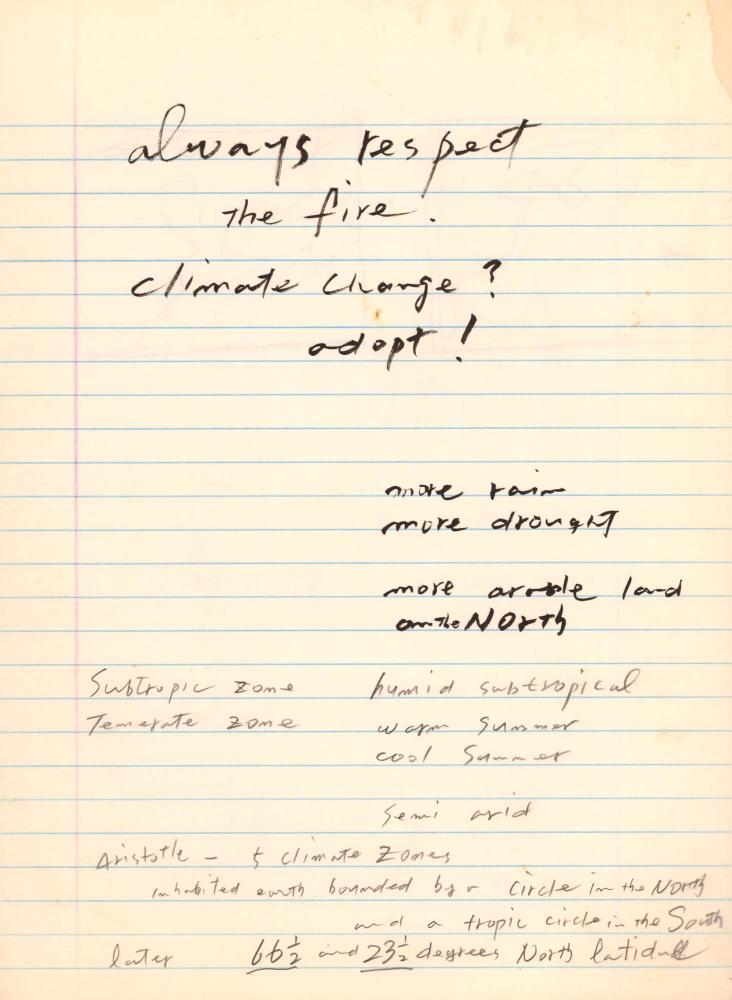 always respect
the fire.
climate change?
adopt!
more rain
more drought
more arable land
on the North
Subtropic zone humid subtropical
Temerate zone warm Summer
cool Summer
Semi arid
Aristotle - 5 climate zones
inhabited earth bounded by a circle in the North
and a tropic circle in the South
later 66½ and 23½ degrees North